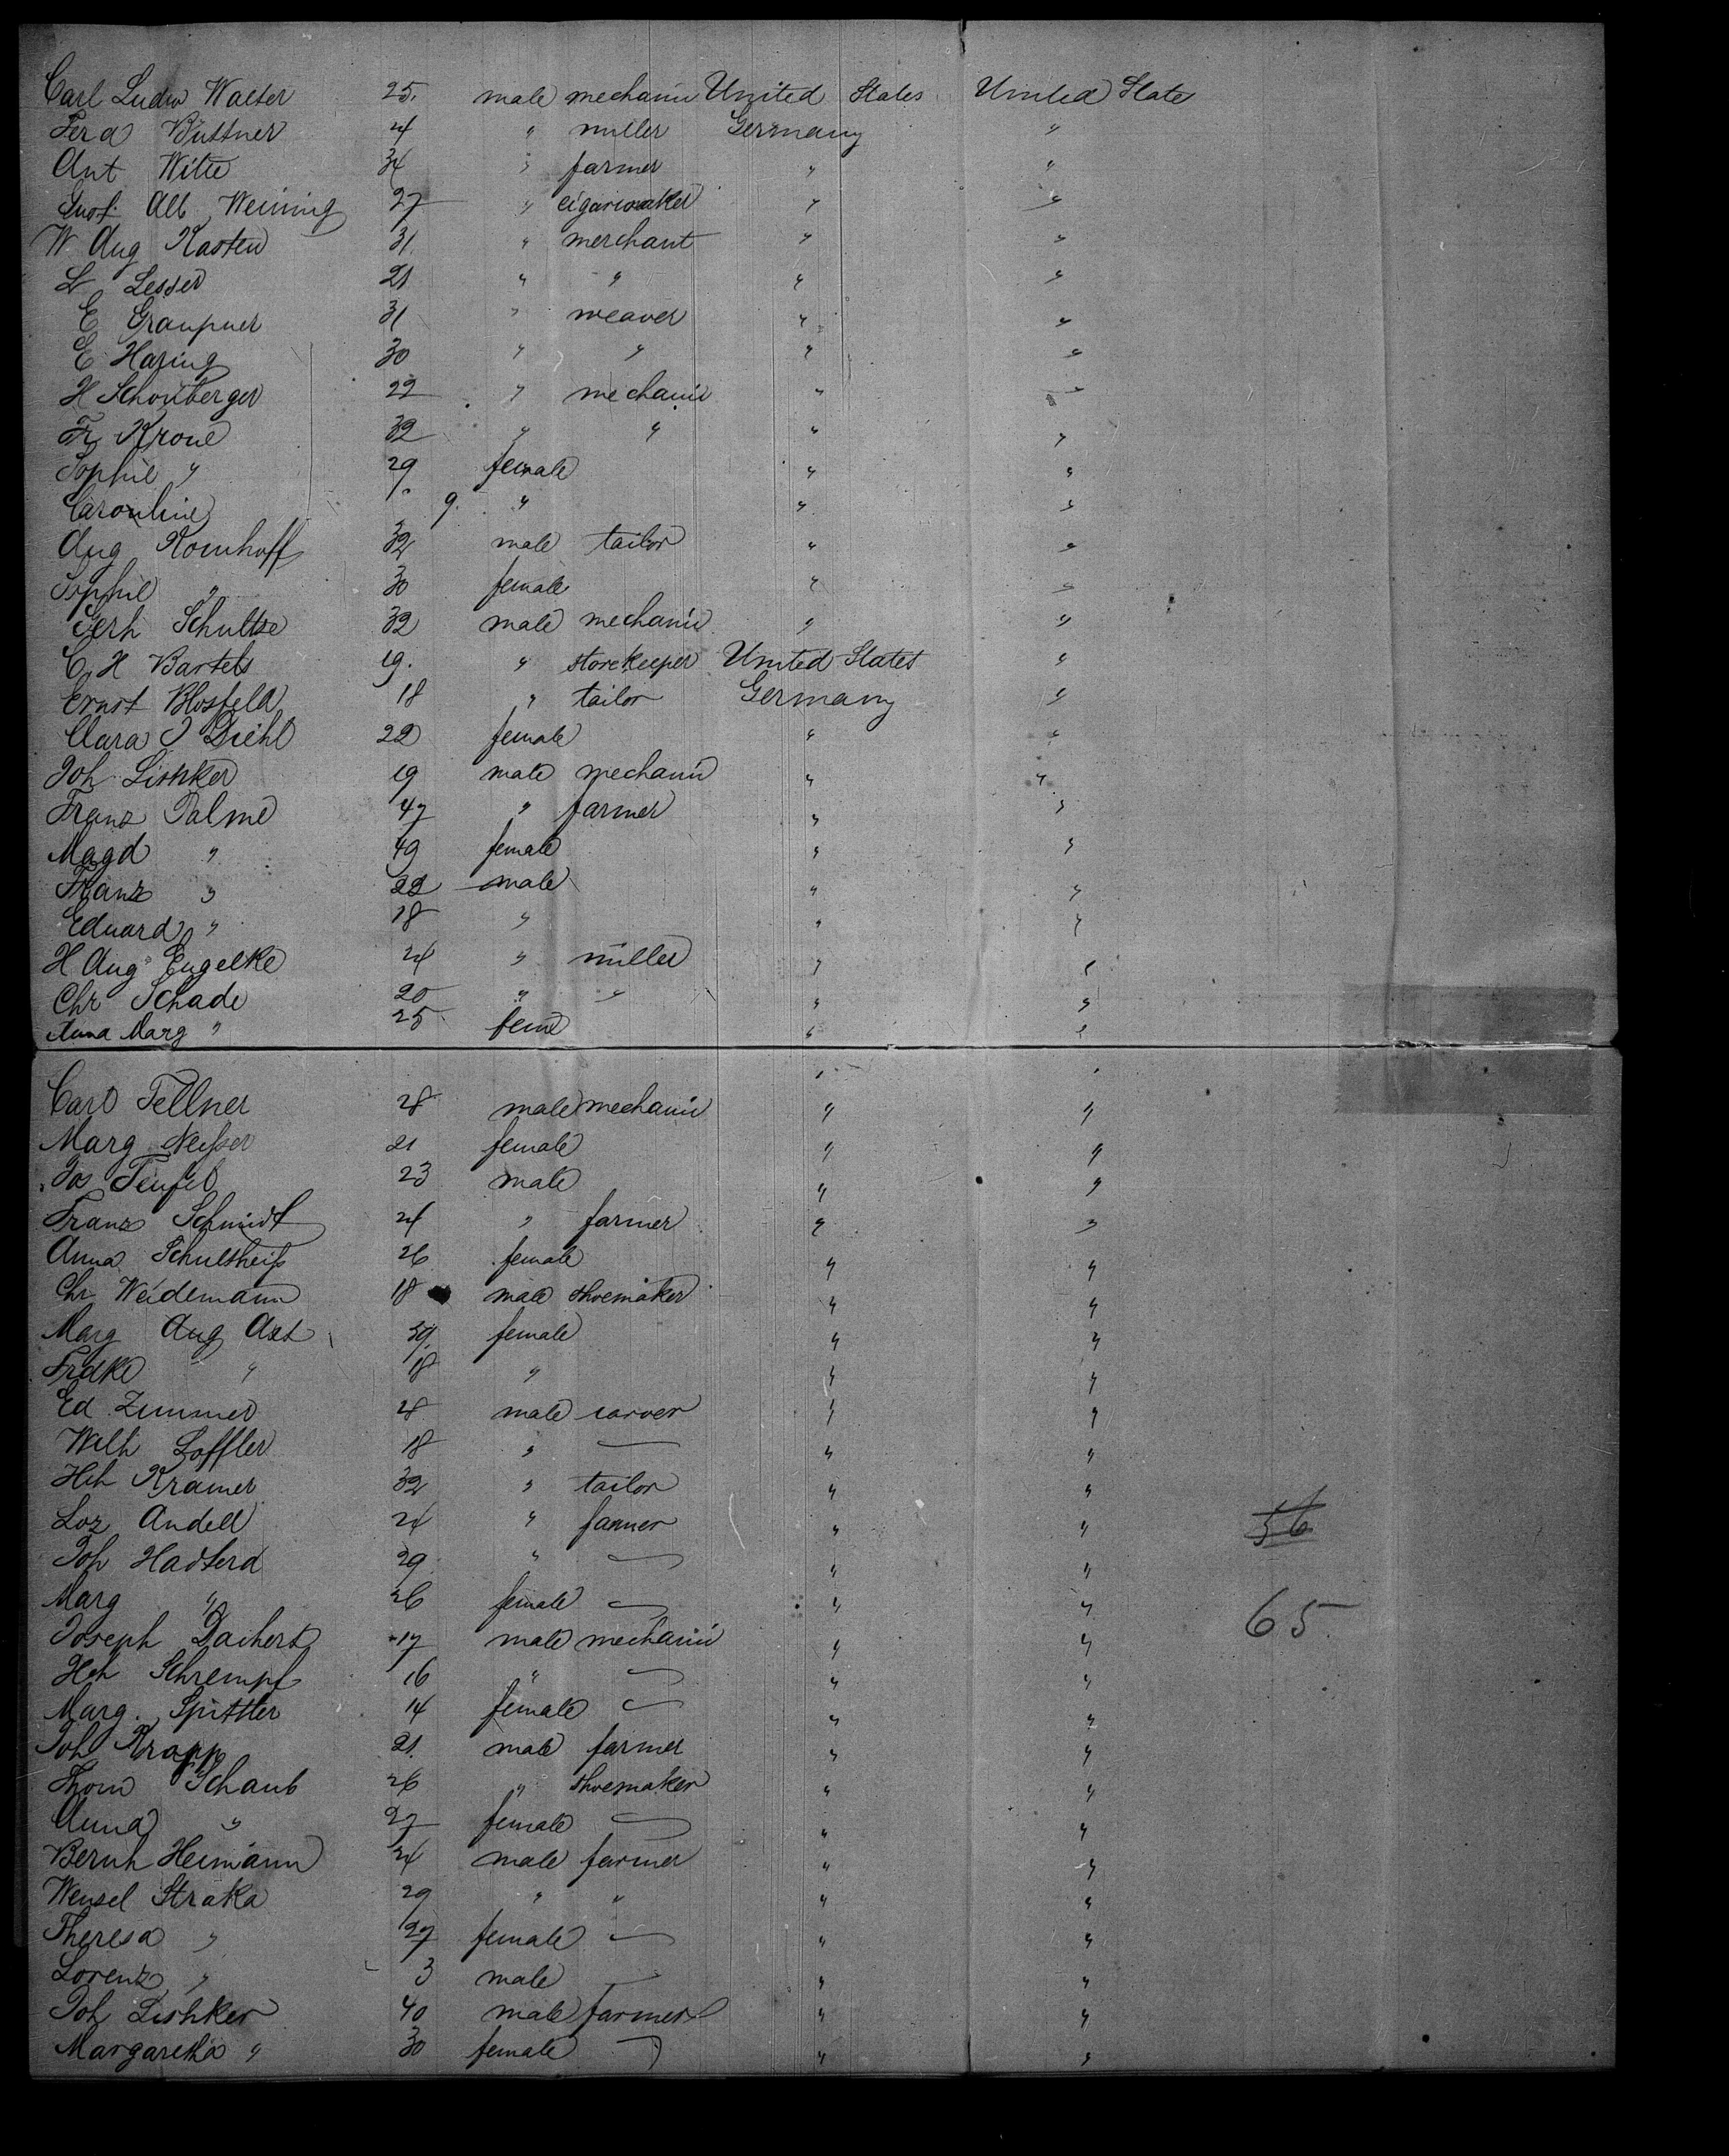 Carl Ludw Walter 25. male mechanic United States United State
Ferd Buttner 24 " miller Germany "
Ant Witte 34 " farmer " "
Gust. Alb Weining 27 " cigarmaker " "
W Aug Kasten 31 " merchant " "
L Lesser 21 " " " "
E Graupner 31 " weaver " "
E Haring 30 " " " "
H Schonberger 22 " mechanic " "
Fr Krone 32 " " " "
Sophie " 29 female " "
Carouline 9. " " "
Aug Komhoff 32 male tailor " "
Sophie " 30 female " "
Gerh Schultze 32 male mechanic " "
C. H Bartels 19. " storekeeper United States "
Ernst Blosfeld 18 " tailor Germany "
Clara J Diehl 22 female " "
Joh Lishker 19 male mechanic " "
Franz Palme 47 " farmer " "
Magd " 49 female " "
Franz " 22 male " "
Eduard " 18 " " "
H Aug Engelke 24 " miller " "
Chr Schade 20 " " " "
Anna Marg " 25 feme " "
Carl Fellner 28 male mechanic " "
Marg Neißer 21 female " "
Jos Teufel 23 male " "
Franz Schmidt 24 " farmer " "
Anna Schultheiß 26 female " "
Chr Weidemann 18 male shoemaker " "
Marg Aug Axt 59. female " "
Fredke " 18 " " "
Ed Zimmer 28 male carver " "
Wilh Loffler 18 " — " "
Hch Kramer 32 " tailor " "
Loz Andell 24 " farmer " " 56
Joh Hadterd 29 " — " "
Marg " 26 female — " " 65.
Joseph Dachert 17 male mechanic " "
Hch Schrempf 16 " — " "
Marg. Spittler 14 female — " "
Joh Krapp 21. male farmer " "
Thom Schaub 26 " shoemaker " "
Anna " 27 female — " "
Bernh Heimann 24 male farmer " "
Wensel Straka 29 " " " "
Theresa " 27 female — " "
Lorenz " 3 male — " "
Joh Lishker 40 male farmer " "
Margaretha " 30 female — " "